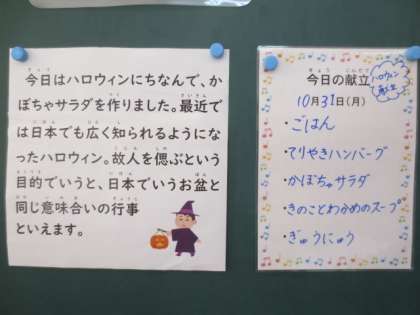 今日はハロウィンにちなんで、か
ぼちゃサラダを作りました。最近で
は日本でも広く知られるようにな
ったハロウィン。故人を偲ぶという
目的でいうと、日本でいうお盆と
同じ意味合いの行事
といえます。
今日の献立
ハロウィン
献立
10月31日(月)
・ごはん
・てりやきハンバーグ
・かぼちゃサラダ
・きのことわかめのスープ
・ぎゅうにゅう